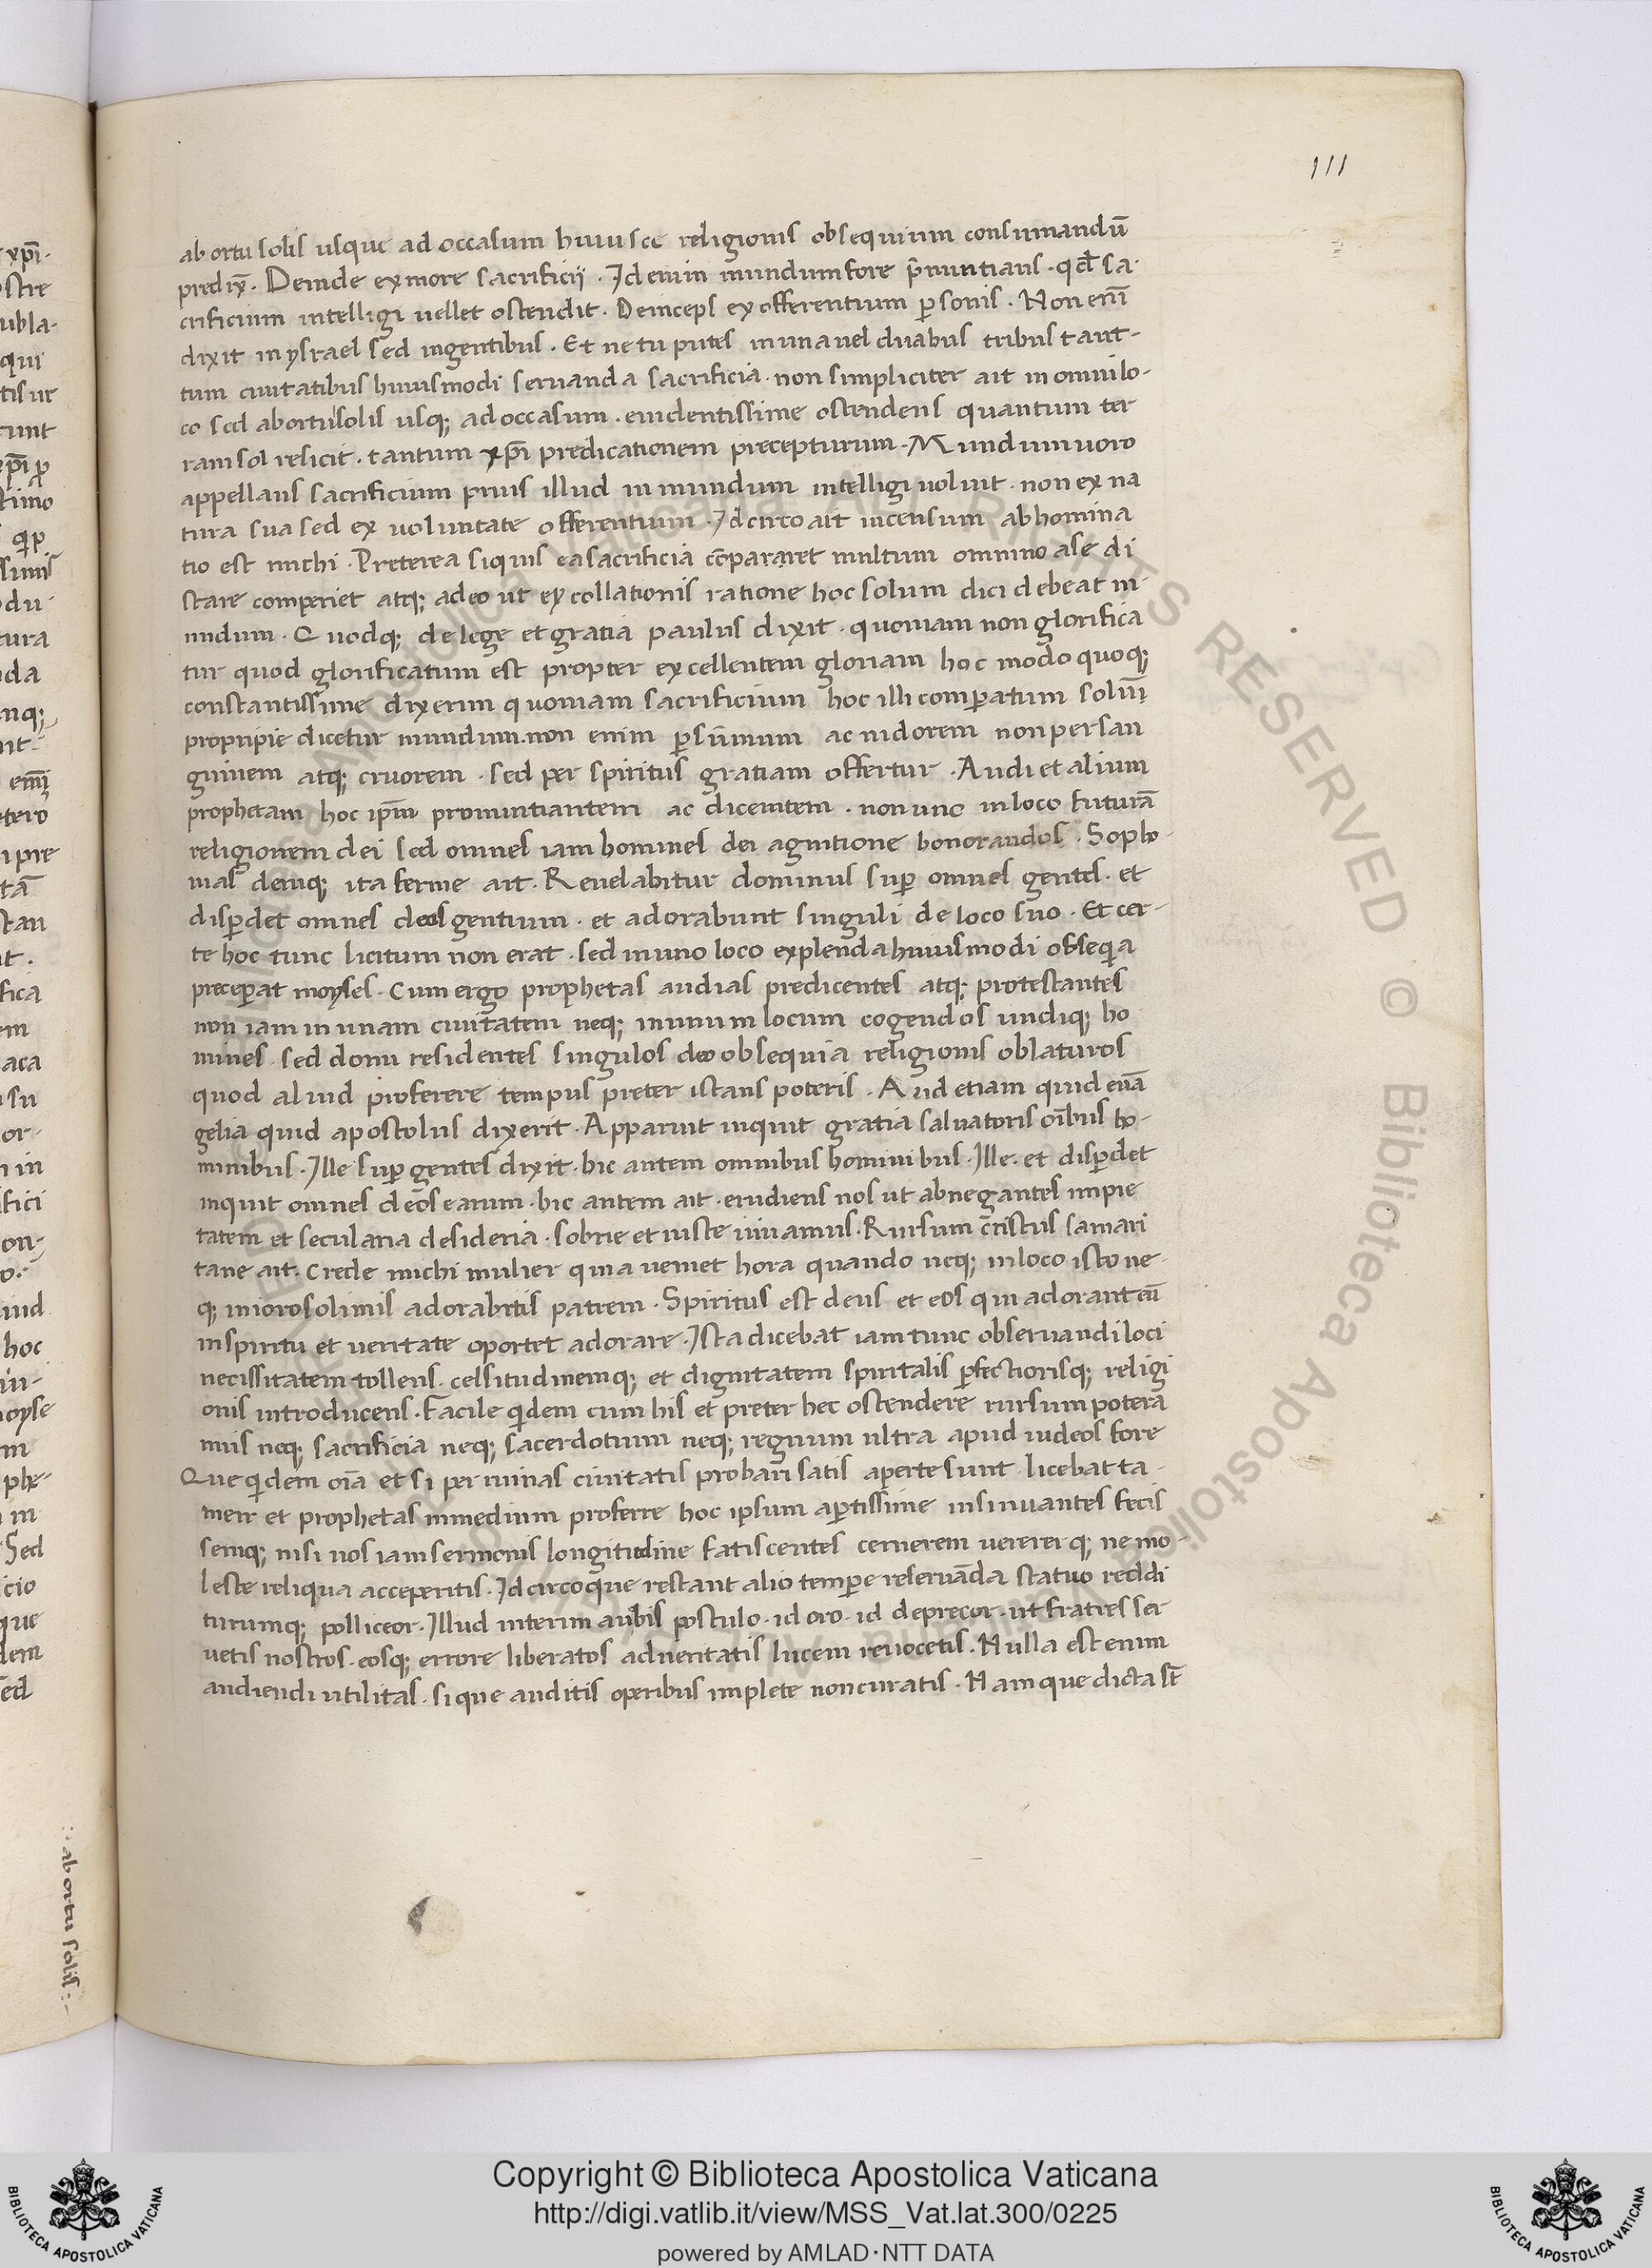 111
ab ortu solis usque ad occasum huiusce religionis obsequium consumandū
predix̄. Deinde ex more sacrificij. Id enim mundum fore p̄nuntians. qđ sa-
crificium intelligi uellet ostendit. Deinceps ex offerentium ꝑsonis. Non eni᷃
dixit in ysrael sed in gentibus. Et ne tu putes in una uel duabus tribus tant-
tum ciuitatibus huiusmodi seruanda sacrificia. non simpliciter ait in omni lo-
co sed ab ortu solis usq; ad occasum. euidentissime ostendens quantum ter
ram sol resicit. tantum xp̄i predicationem precepturum. Mundum uoro
appellans sacrificium prius illud in mundum intelligi uoluit. non ex na
tura sua sed ex uoluntate offerentium. Idcirco ait incensum abhomina
tio est michi. Preterea siquis ea sacrificia cōpararet multum omnino a se di
stare comperiet atq; adeo ut ex collationis ratione hoc solum dici debeat m-
undum. Quodq; de lege et gratia paulus dixit. quoniam non glorifica
tur quod glorificatum est propter excellentem gloriam hoc modo quoq;
constantissime dixerim quoniam sacrificium hoc illi comꝑatum solum̄
propripie dicetur mundum. non enim ꝑ sūmum ac nidorem non per san
guinem atq; cruorem. sed per spiritus gratiam offertur. Audi et alium
prophetam hoc ip̄m pronuntiantem ac dicentem. non uno in loco futurā
religionem dei sed omnes iam homines dei agnitione honorandos. Sopho-
nias deniq; ita ferme ait. Reuelabitur dominus suꝑ omnes gentes. et
disꝑdet omnes deos gentium. et adorabunt singuli de loco suo. Et cer-
te hoc tunc licitum non erat. sed in uno loco explenda huiusmodi obseq̄a
preceꝑat moyses. Cum ergo prophetas audias predicentes atq; protestantes
non iam in unam ciuitatem neq; in unum locum cogendos undiq; ho
mines. sed domi residentes singulos deo obsequia religionis oblaturos
quod aliud proferere tempus preter istans poteris. Aud etiam quid euā
gelia quid apostolus dixerit. Apparuit inquit gratia saluatoris oībus ho-
minibus. Ille suꝑ gentes dixit. hic autem omnibus hominibus. Ille. et disꝑdet
inquit omnes deos earum. hic autem ait. erudiens nos ut abnegantes impie
tatem et secularia desideria. sobrie et iuste uiuamus. Rursum cristus samari
tane ait. Crede michi mulier quia ueniet hora quando neq; in loco isto ne-
q; in iorosolimis adorabitis patrem. Spiritus est deus et eos qui adorant eū
in spiritu et ueritate oportet adorare. Ista dicebat iam tunc obseruandi loci
necissitatem tollens. celsitudinemq; et dignitatem spiritalis ꝑfectiorisq; religi
onis introducens. Facile q̄dem cum his et preter hec ostendere rursum potera
mus neq; sacrificia neq; sacerdotium neq; regnum ultra apud iudeos fore
Que q̄dem oīa et si per ruinas ciuitatis probari satis aperte sunt. licebat ta-
men et prophetas in medium proferre hoc ipsum aꝑtissime insinuantes fecis
semq; nisi uos iam sermonis longitudine fatiscentes cernerem uererer q; ne mo-
leste reliqua acceperitis. Idcirco que restant alio temꝑe reseruāda statuo reddi
turumq; polliceor. Illud interim a uobis postulo. id oro. id deprecor. ut fratres ser
uetis nostros. eosq; errore liberatos ad ueritatis lucem reuocetis. Nulla est enim
audiendi utilitas. si que auditis operibus implete non curatis. Nam que dicta st̄
:. ab ortu solis :-
Copyright © Biblioteca Apostolica Vaticana
http://digi.vatlib.it/view/MSS_Vat.lat.300/0225
powered by AMLAD·NTT DATA
BIBLIOTECA APOSTOLICA VATICANA
BIBLIOTECA APOSTOLICA VATICANA